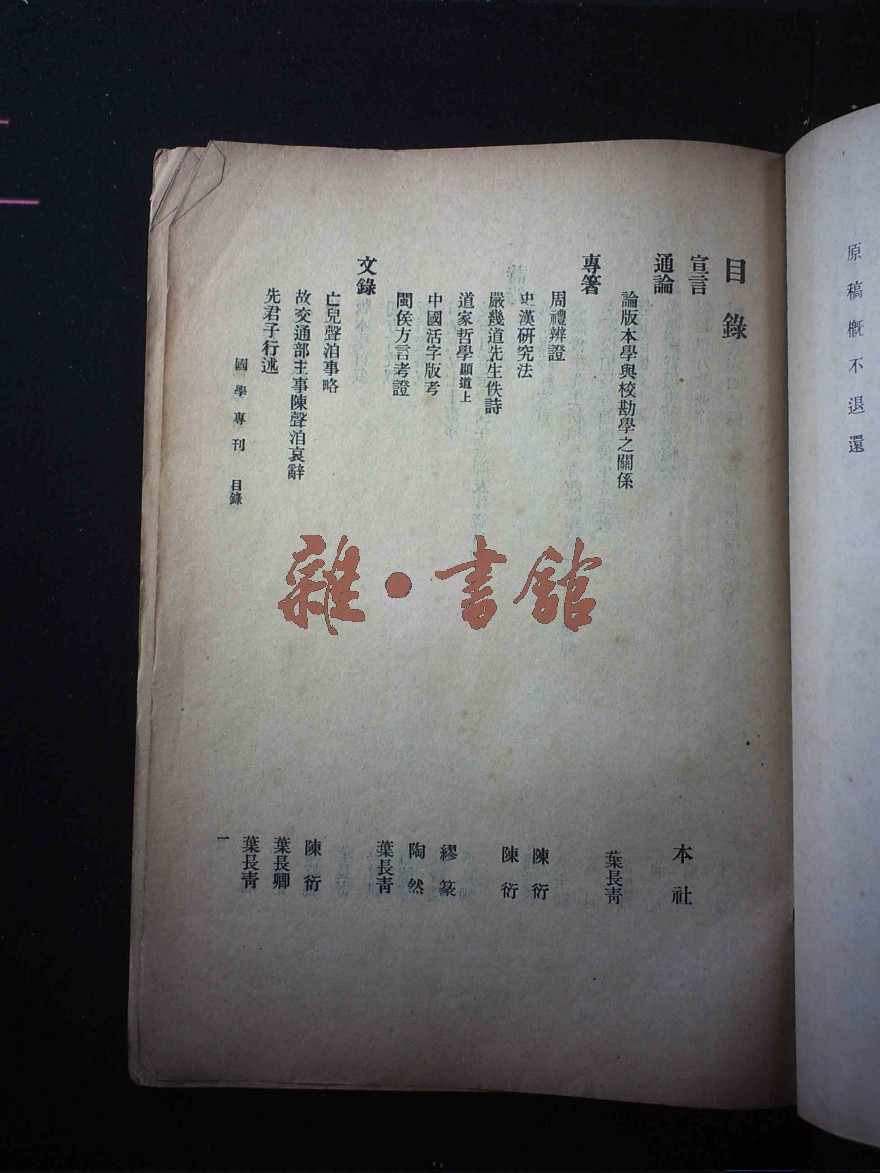 原稿概不退還
目錄
宣言 本社
通論
論版本學與校勘學之關係 葉長靑
專箸
周禮辨證 陳衍
史漢研究法 陳衍
嚴幾道先生佚詩
道家哲學顯道上 繆篆
中國活字版考 陶然
閩侯方言考證 葉長靑
文錄
亡兒聲泊事略 陳衍
故交通部主事陳聲泊哀辭 葉長卿
先君子行述 葉長靑
國學專刊 目錄 一
雜·書館